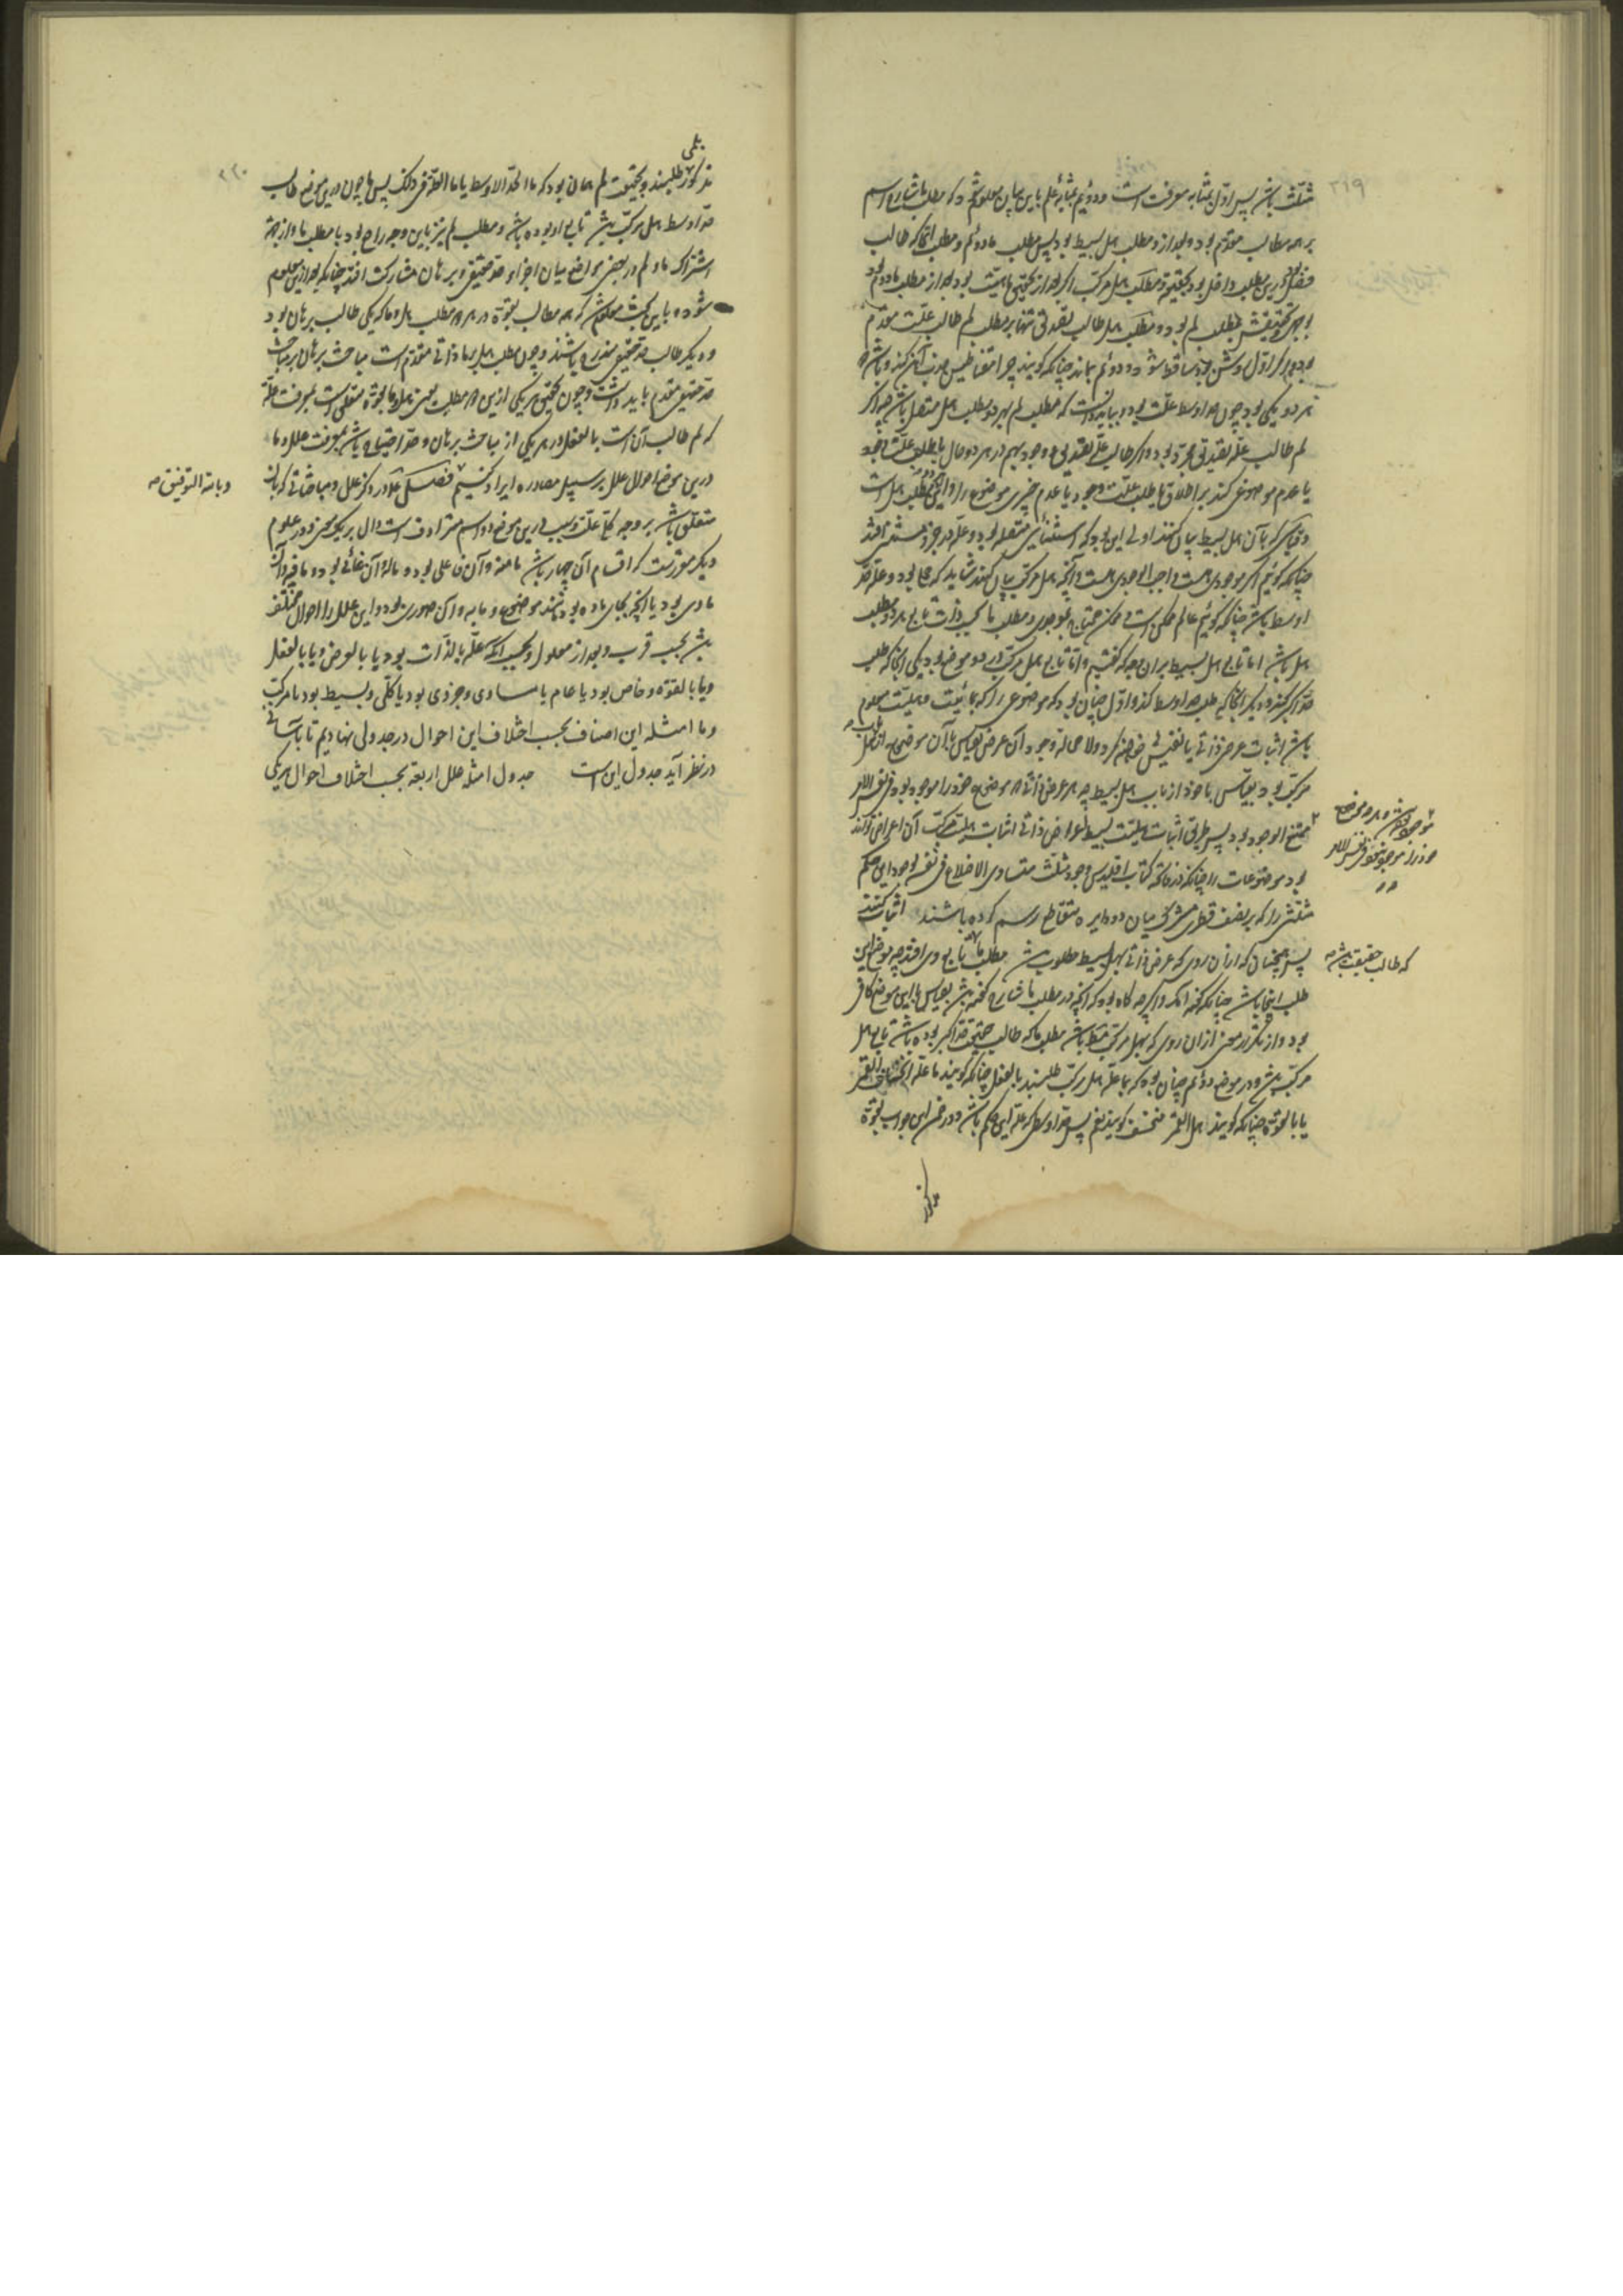 ۲۱۹
مثلث باشد پس اول بمثابه معرفت است و دویم بمثابه علم باین بیان معلوم شود که مطلب ما شارح اسم
بر همه مطالب مقدم بود و بعد ازو مطلب هل بسیط بود پس مطلب ما دوم و مطلب ای آنجا که طالب
فصل بود درین مطلب داخل بود بحقیقت و مطلب هل مرکب اگر بعد از تحقیق ماهیت بود بعد از مطلب ما دوم بود
مطلب لم بود و مطلب هل طالب تصدیق تنها بر مطلب لم طالب علت مقدم
اول روشن بود ساقط شود و دوم بماند چنانکه گویند چرا مقناطیس جذب آهن کند و باشد که
هر دو یکی بود چون حد اوسط علت بود و بباید دانست که مطلب لم بهر دو مطلب هل متصل باشد چه اگر
لم طالب علت تصدیق مجرد بود و اگر طالب علت تصدیق و وجود بهم در هر دو حال یا طلب علت وجود
یا عدم موضوعی کند بر اطلاق یا طلب علت وجود یا عدم چیزی موضوع را و این دو مطلب هل است
و قیاسی که بآن هل بسیط بیان کنند اولی این بود که استثنائی متصل بود و علت در جزو مستثنی افتد
چنانکه گوئیم اگر موجودی هست واجب الوجودی هست و آنچه هل مرکب بیان کنند شاید که حملی بود و علت حد
اوسط باشد چنانکه گوئیم عالم ممکن است و ممکن محتاج بموجود و مطلب ما بحسب ذات تابع هر دو مطلب
هل باشد اما تابع هل بسیط بر آن وجه که گفتیم و اما تابع هل مرکب در دو موضع بود یکی آنجا که طلب
حد اکبر کند و دیگر آنجا که طلب حد اوسط کند و اول چنان بود که موضوعی را که مائیت و هلیت معلوم
باشد اثبات عرضی ذاتی یا نفیش خواهند کرد و لا محاله وجود آن عرض بقیاس با آن موضوع از باب هل
مرکب بود و بقیاس با خود از باب هل بسیط چه هر عرضی ذاتی که موضوع خود را موجود بود فی نفس الامر
ممتنع الوجود بود پس طریق اثبات هلیت بسیط اعراض ذاتی اثبات هلیت مرکب آن اعراض تواند
بود موضوعات را چنانکه در فاتحه کتاب اقلیدس وجود مثلث متساوی الاضلاع فی نفسه بوجود این حکم
مثلثی را که بر نصف قطری مشترک میان دو دایره متقاطع رسم کرده باشند اثبات کنند
پس همچنان که از آن روی که عرض ذاتی بهل بسیط مطلوب باشد مطلب ما تابع وی افتد چه موضع این
طلب آنجا باشد چنانکه گفته آمد و اگر چه گاه بود که آنچه در مطلب ما شارح گفته باشند بقیاس با این موضع کافی
بود و از تکرار مغنی از آن روی که بهل مرکب متعلق باشد مطلب ما که طالب حقیقت حد اکبر بوده باشد تابع هل
مرکب باشد و در موضع دوم چنان بود که بما علت هل مرکب طلبند بالفعل چنانکه گویند ما علة انخساف القمر
یا بالقوة چنانکه گویند هل القمر منخسف گویند نعم پس حد اوسط که علت این حکم باشد و در ضمن این جواب بقوة
مذکور
که طالب حقیقت باشد صح
۲۲۰
مذکور بما طلبند و بحقیقت لم همان بود که ما الحد الاوسط یا ما العلة فی ذلک پس ما چون درین موضع طالب
حد اوسط هل مرکب باشد تابع او بوده باشد و مطلب لم نیز باین وجه راجع بود با مطلب ما و از جهت
اشتراک ما و لم در بعضی مواضع میان اجزاء حد حقیقی و برهان مشارکت افتد چنانکه بعد ازین معلوم
شود و باین بحث معلوم شد که همه مطالب بقوة در هر دو مطلب هل و ما که یکی طالب برهان بود
و دیگر طالب حد حقیقی مندرج باشند و چون مطلب هل بر ما ذاتی مقدم است مباحث برهان بر مباحث
حد حقیقی مقدم باید داشت و چون تحقیق هر یکی ازین دو مطلب یعنی هل و ما بقوة متعلق است بمعرفت علت
که لم طالب آن است بالفعل و در هر یکی از مباحث برهان و حد احتیاج باشد بمعرفت علل و ما
درین موضع احوال علل بر سبیل مصادره ایراد کنیم فصل در ذکر علل و مباحثاتی که بآن
متعلق باشد بر وجه کلی علت و سبب درین موضع دو اسم مترادف است دال بر یک معنی و در علوم
دیگر مقرر است که اقسام آن چهار باشد ما منه و آن فاعلی بود و ما له و آن غائی بود و ما فیه و آن
مادی بود یا آنچه بجای ماده بود مانند موضوع و ما به و آن صوری بود و این علل را احوال مختلف
باشد بحسب قرب و بعد از معلول و بحسب آنکه علة بالذات بود یا بالعرض و یا بالفعل
و یا بالقوة و خاص بود یا عام یا مساوی و جزوی بود یا کلی و بسیط بود یا مرکب
و ما امثله این اصناف بحسب اختلاف این احوال در جدولی نهادیم تا بآسانی
در نظر آید جدول این است جدول امثله علل اربعه بحسب اختلاف احوال هر یکی
و بالله التوفیق صح